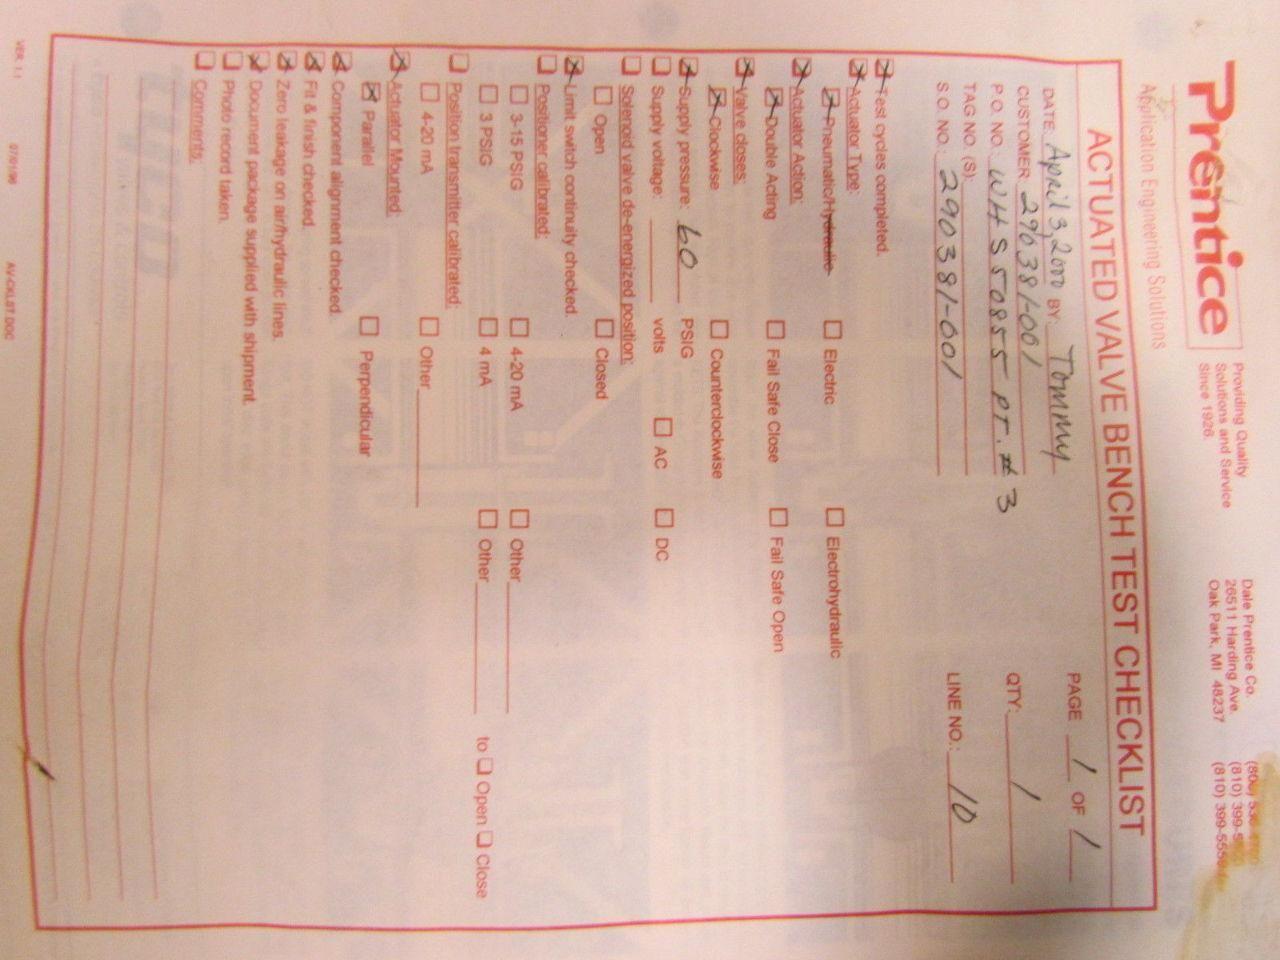 Prentice
Application Engineering Solutions
Providing Quality
Solutions and Service
Since 1926.
Dale Prentice Co.
26511 Harding Ave.
Oak Park, MI 48237
(810)
(810) 399-
ACTUATED VALVE BENCH TEST CHECKLIST
DATE: April 3, 2000 BY: Tommy PAGE 1 OF 1
CUSTOMER 290381-001
P.O. NO.: WHS 50855 PT. # 3 QTY: 1
TAG NO. (S):
S.O. NO.: 290381-001 LINE NO.: 10
Test cycles completed.
Actuator Type:
Pneumatic/Hydraulic Electric Electrohydraulic
Actuator Action:
Double Acting Fail Safe Close Fail Safe Open
Valve closes:
Clockwise Counterclockwise
Supply pressure: 60 PSIG
Supply voltage: volts AC DC
Solenoid valve de-energized position:
Open Closed
Limit switch continuity checked.
Positioner calibrated:
3-15 PSIG 4-20 mA Other
3 PSIG 4 mA Other to Open Close
Position transmitter calibrated:
4-20 mA Other
Actuator Mounted:
Parallel Perpendicular
Component alignment checked.
Fit & finish checked.
Zero leakage on air/hydraulic lines.
Document package supplied with shipment.
Photo record taken.
Comments:
VER. 1.1 07/01/96 AV-CKLST.DOC